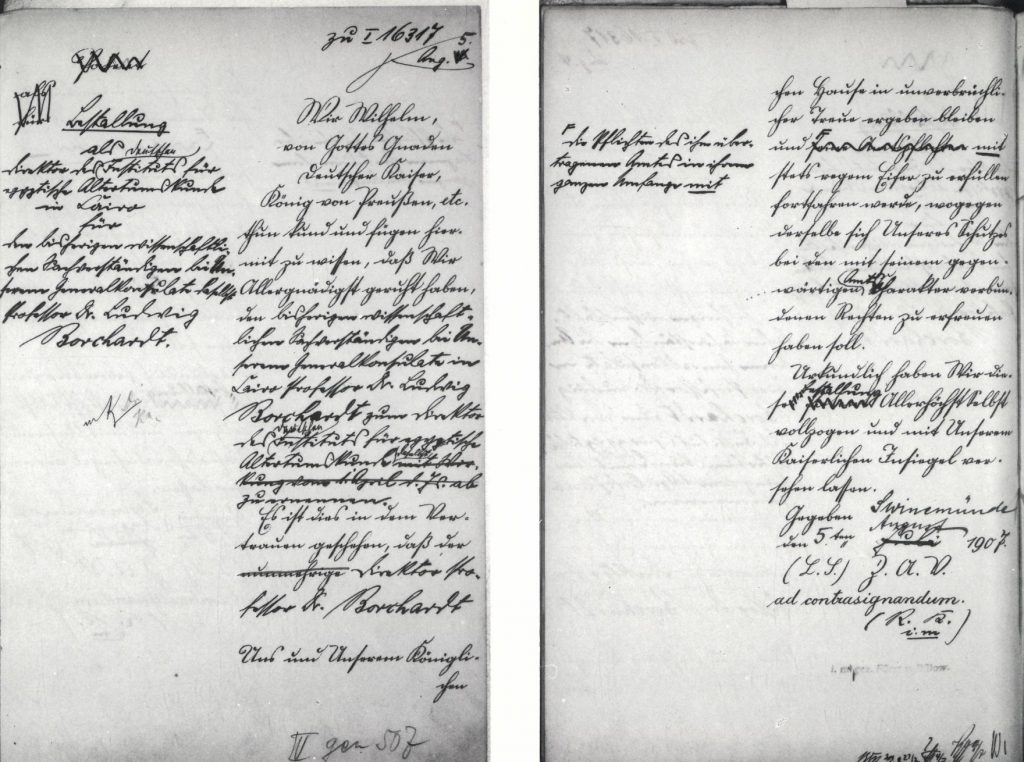 zu I 16317
5.
Aug.
Bestallung
als deutscher
Direktor des Instituts für
egyptische Altertumskunde
in Cairo
für
den bisherigen wissenschaftli-
chen Sachverständigen bei Un-
serem Generalkonsulate daselbst
Professor Dr. Ludwig
Borchardt.
Wir Wilhelm,
von Gottes Gnaden
Deutscher Kaiser,
König von Preußen, etc.
thun kund und fügen hier-
mit zu wissen, daß Wir
Allergnädigst geruht haben,
den bisherigen wissenschaft-
lichen Sachverständigen bei Un-
serem Generalkonsulate in
Cairo Professor Dr. Ludwig
Borchardt zum Direktor
deutschen
des Instituts für egyptische
daselbst
Altertumskunde mit Wir-
kung vom 1. April d. Js. ab
zu ernennen.
Es ist dies in dem Ver-
trauen geschehen, daß der
nunmehrige Direktor Pro-
fessor Dr. Borchardt
Uns und Unserem Königli-
chen
IV gen. 507
chen Hause in unverbrüchli-
cher Treue ergeben bleiben
und seine Amtspflichten mit
die Pflichten des ihm über-
tragenen Amtes in ihrem
ganzen Umfange mit
stets regem Eifer zu erfüllen
fortfahren werde, wogegen
derselbe sich Unseres Schutzes
bei den mit seinem gegen-
Amts
wärtigen Charakter verbun-
denen Rechten zu erfreuen
haben soll.
Urkundlich haben Wir die-
Bestallung
se Allerhöchst Selbst
vollzogen und mit Unserem
Kaiserlichen Insiegel ver-
sehen lassen.
Gegeben Swinemünde
August
den 5ten Juli 1907.
(L.S.) Z. A. V.
ad contrasignandum.
(R. K.
i. m)